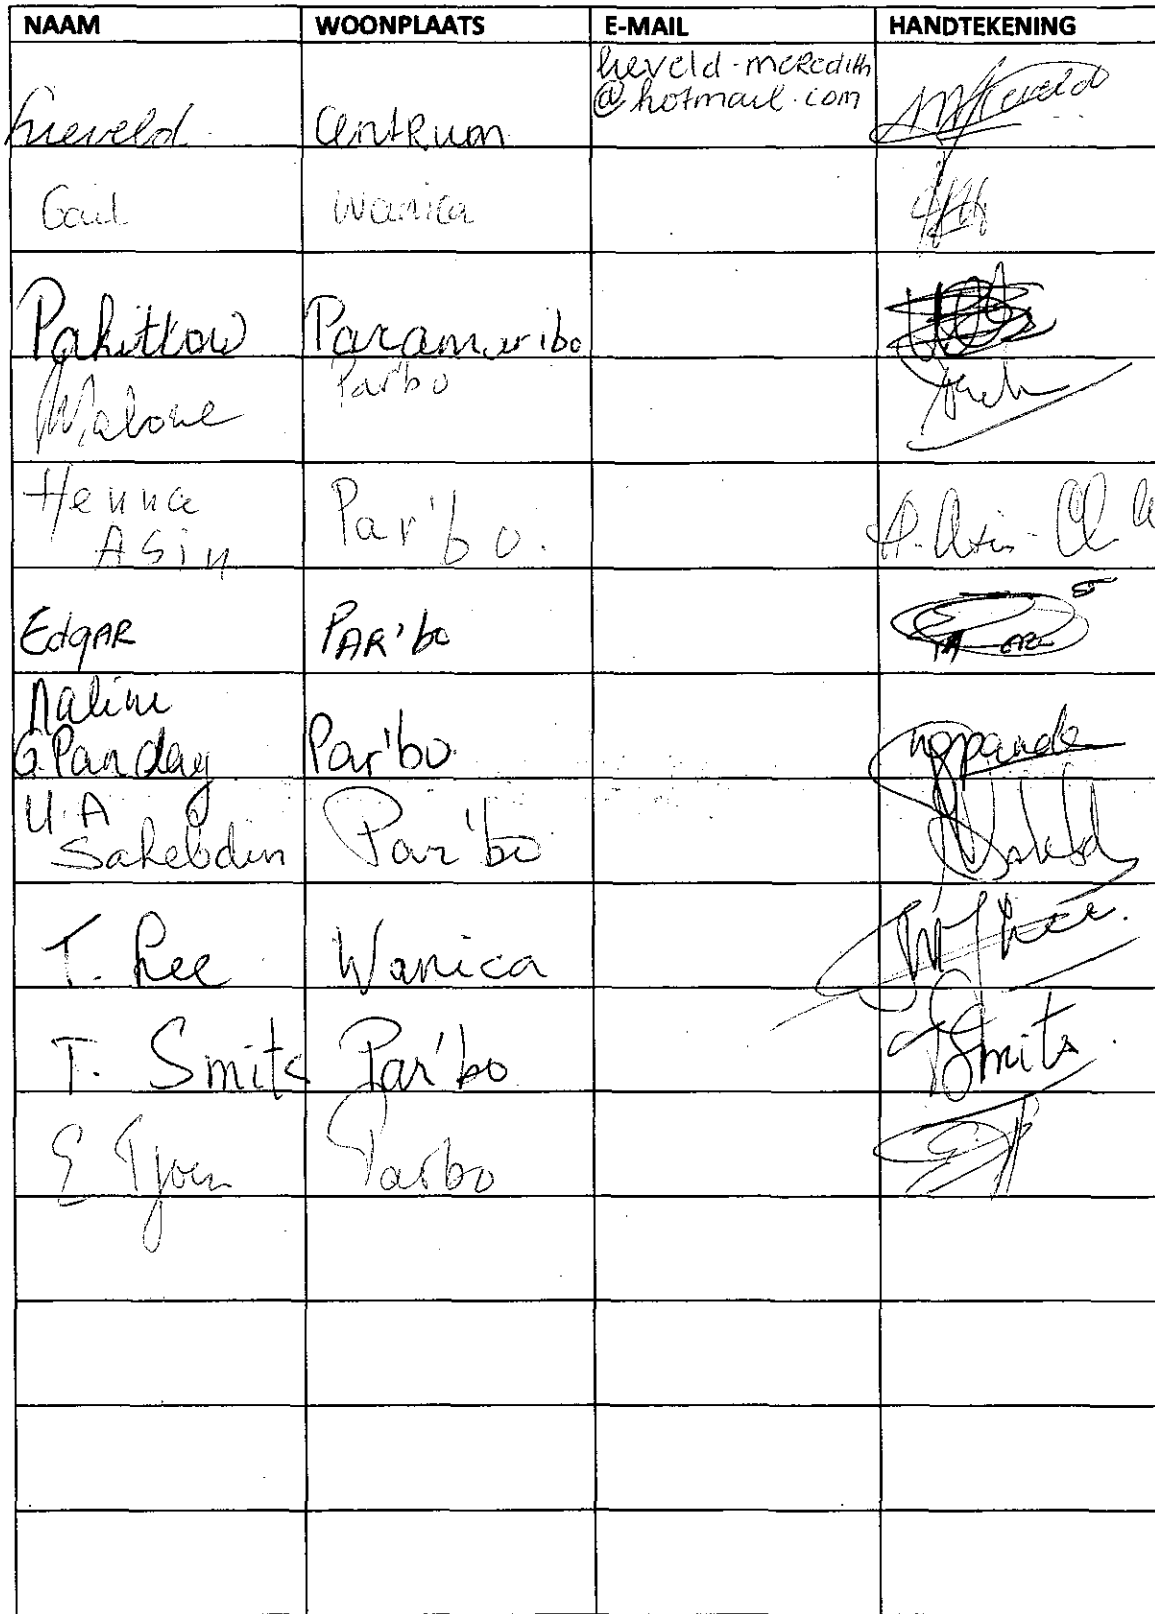 NAAM WOONPLAATS E-MAIL HANDTEKENING
Lieveld Centrum lieveld-meredith
@hotmail.com
Gail Wanica
Pahitkow Paramaribo
Malone Parbo
Henna
ASin Par'bo. A. Asin-
Edgar PAR'bo
Nalini
G.Panday Par'bo ngpanda
U.A
Sahebdin Par'bo Sahebd
T. Lee Wanica
T. Smits Par'bo TSmits
E Tjoen Parbo